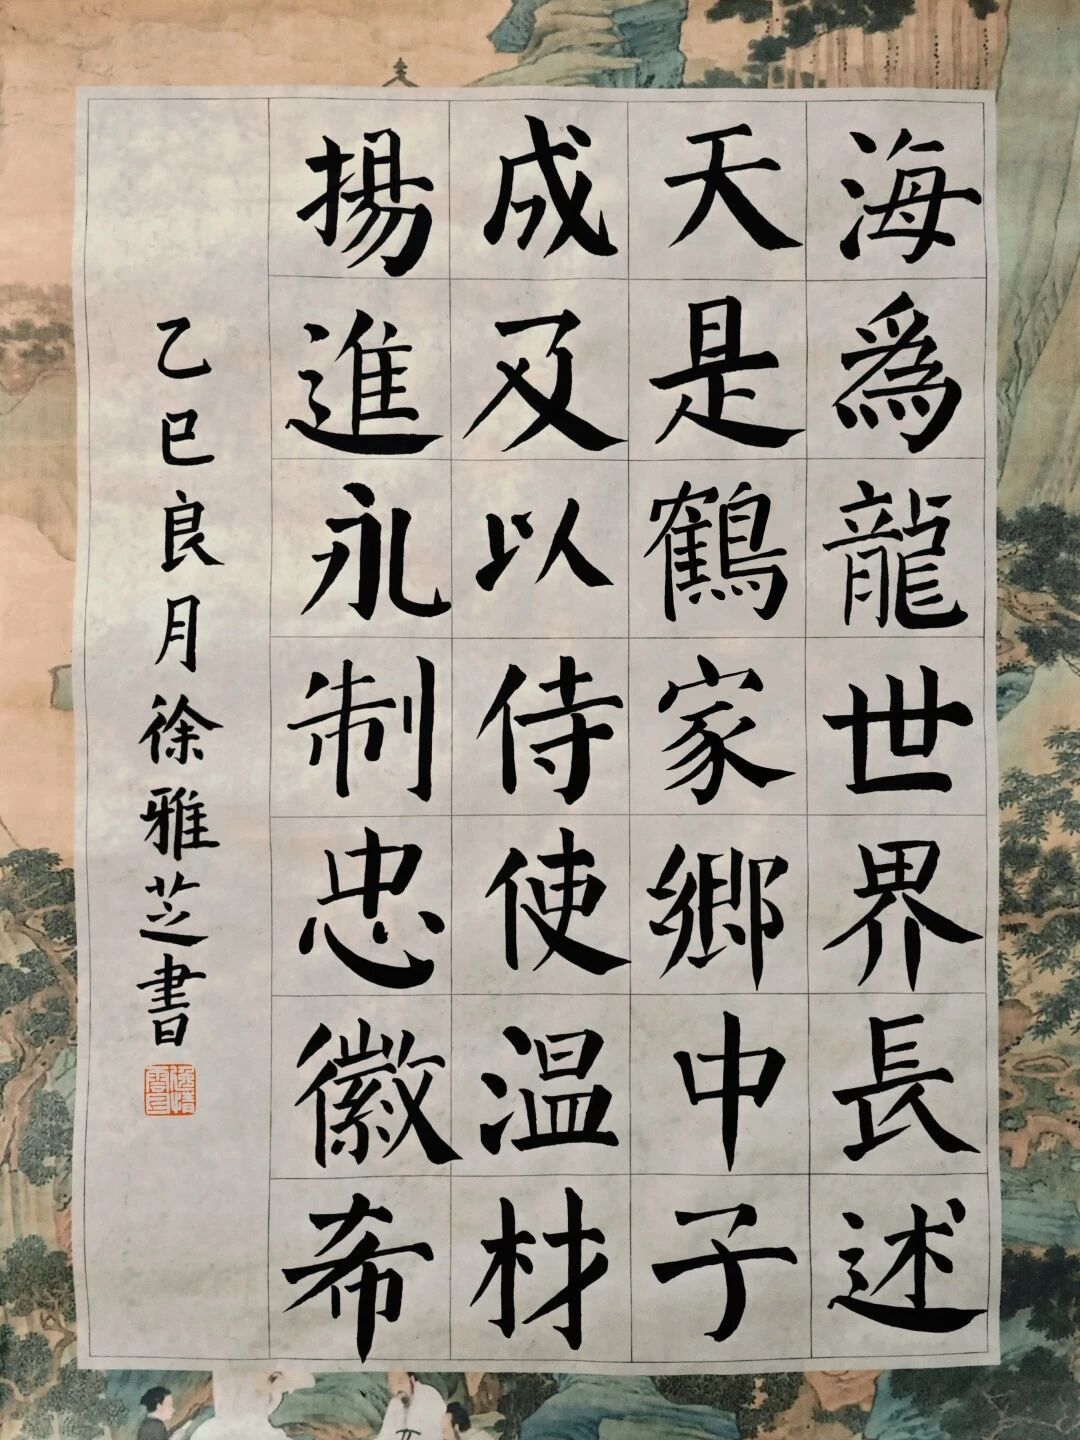 海為龍世界長述
天是鶴家鄉中子
成及以侍使温材
揚進永制忠徽希
乙巳良月徐雅芝書